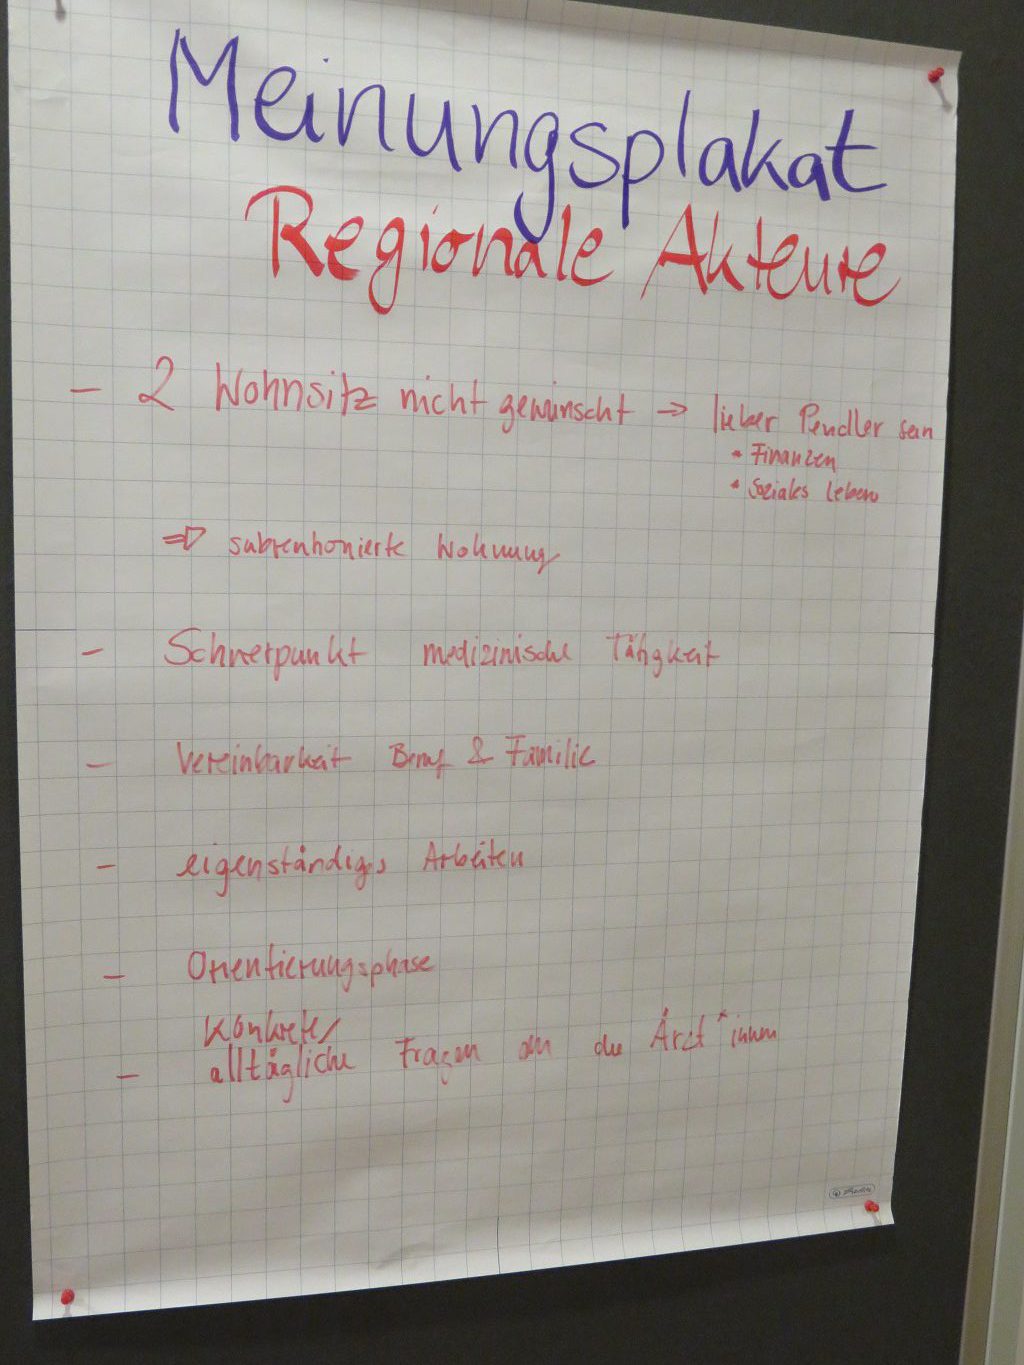 Meinungsplakat
Regionale Akteure
- 2 Wohnsitz nicht gewünscht → lieber Pendler sein
* Finanzen
* Soziales Leben
⇒ subventionierte Wohnung
- Schwerpunkt medizinische Tätigkeit
- Vereinbarkeit Beruf & Familie
- eigenständiges Arbeiten
- Orientierungsphase
Konkrete/
- alltägliche Fragen an die Ärzt*innen